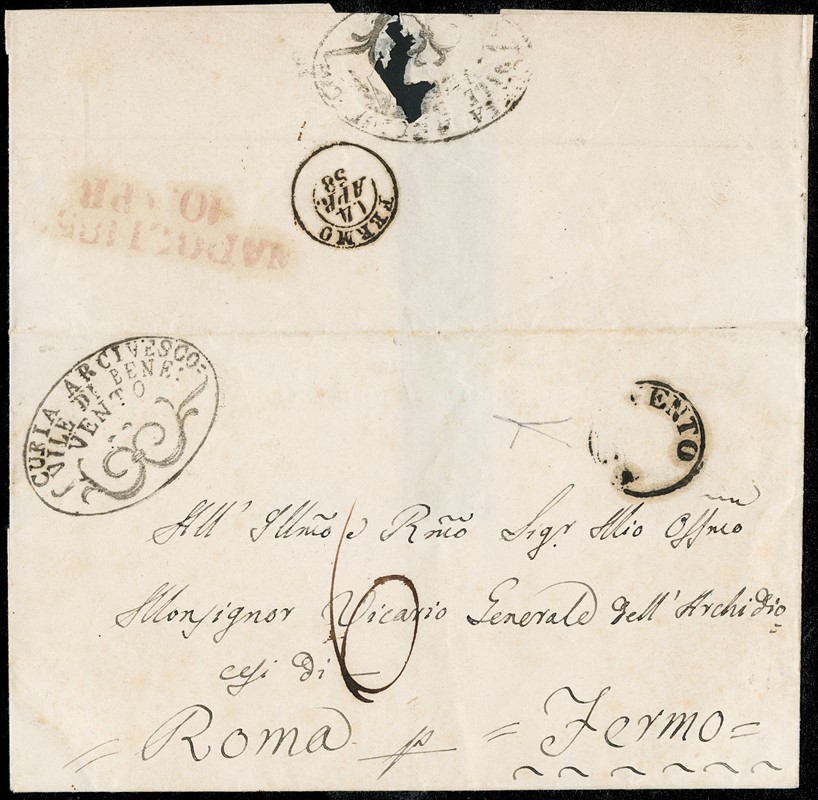 FERMO
14
APR
58
10 APR
CURIA ARCIVESCO=
VILE DI BENE:
VENTO
VENTO
6
All' Illmo e Rmo Sigr Mio Ossmo
Monsignor Vicario Generale dell' Archidio
=
cesi di —
= Roma p = Fermo =